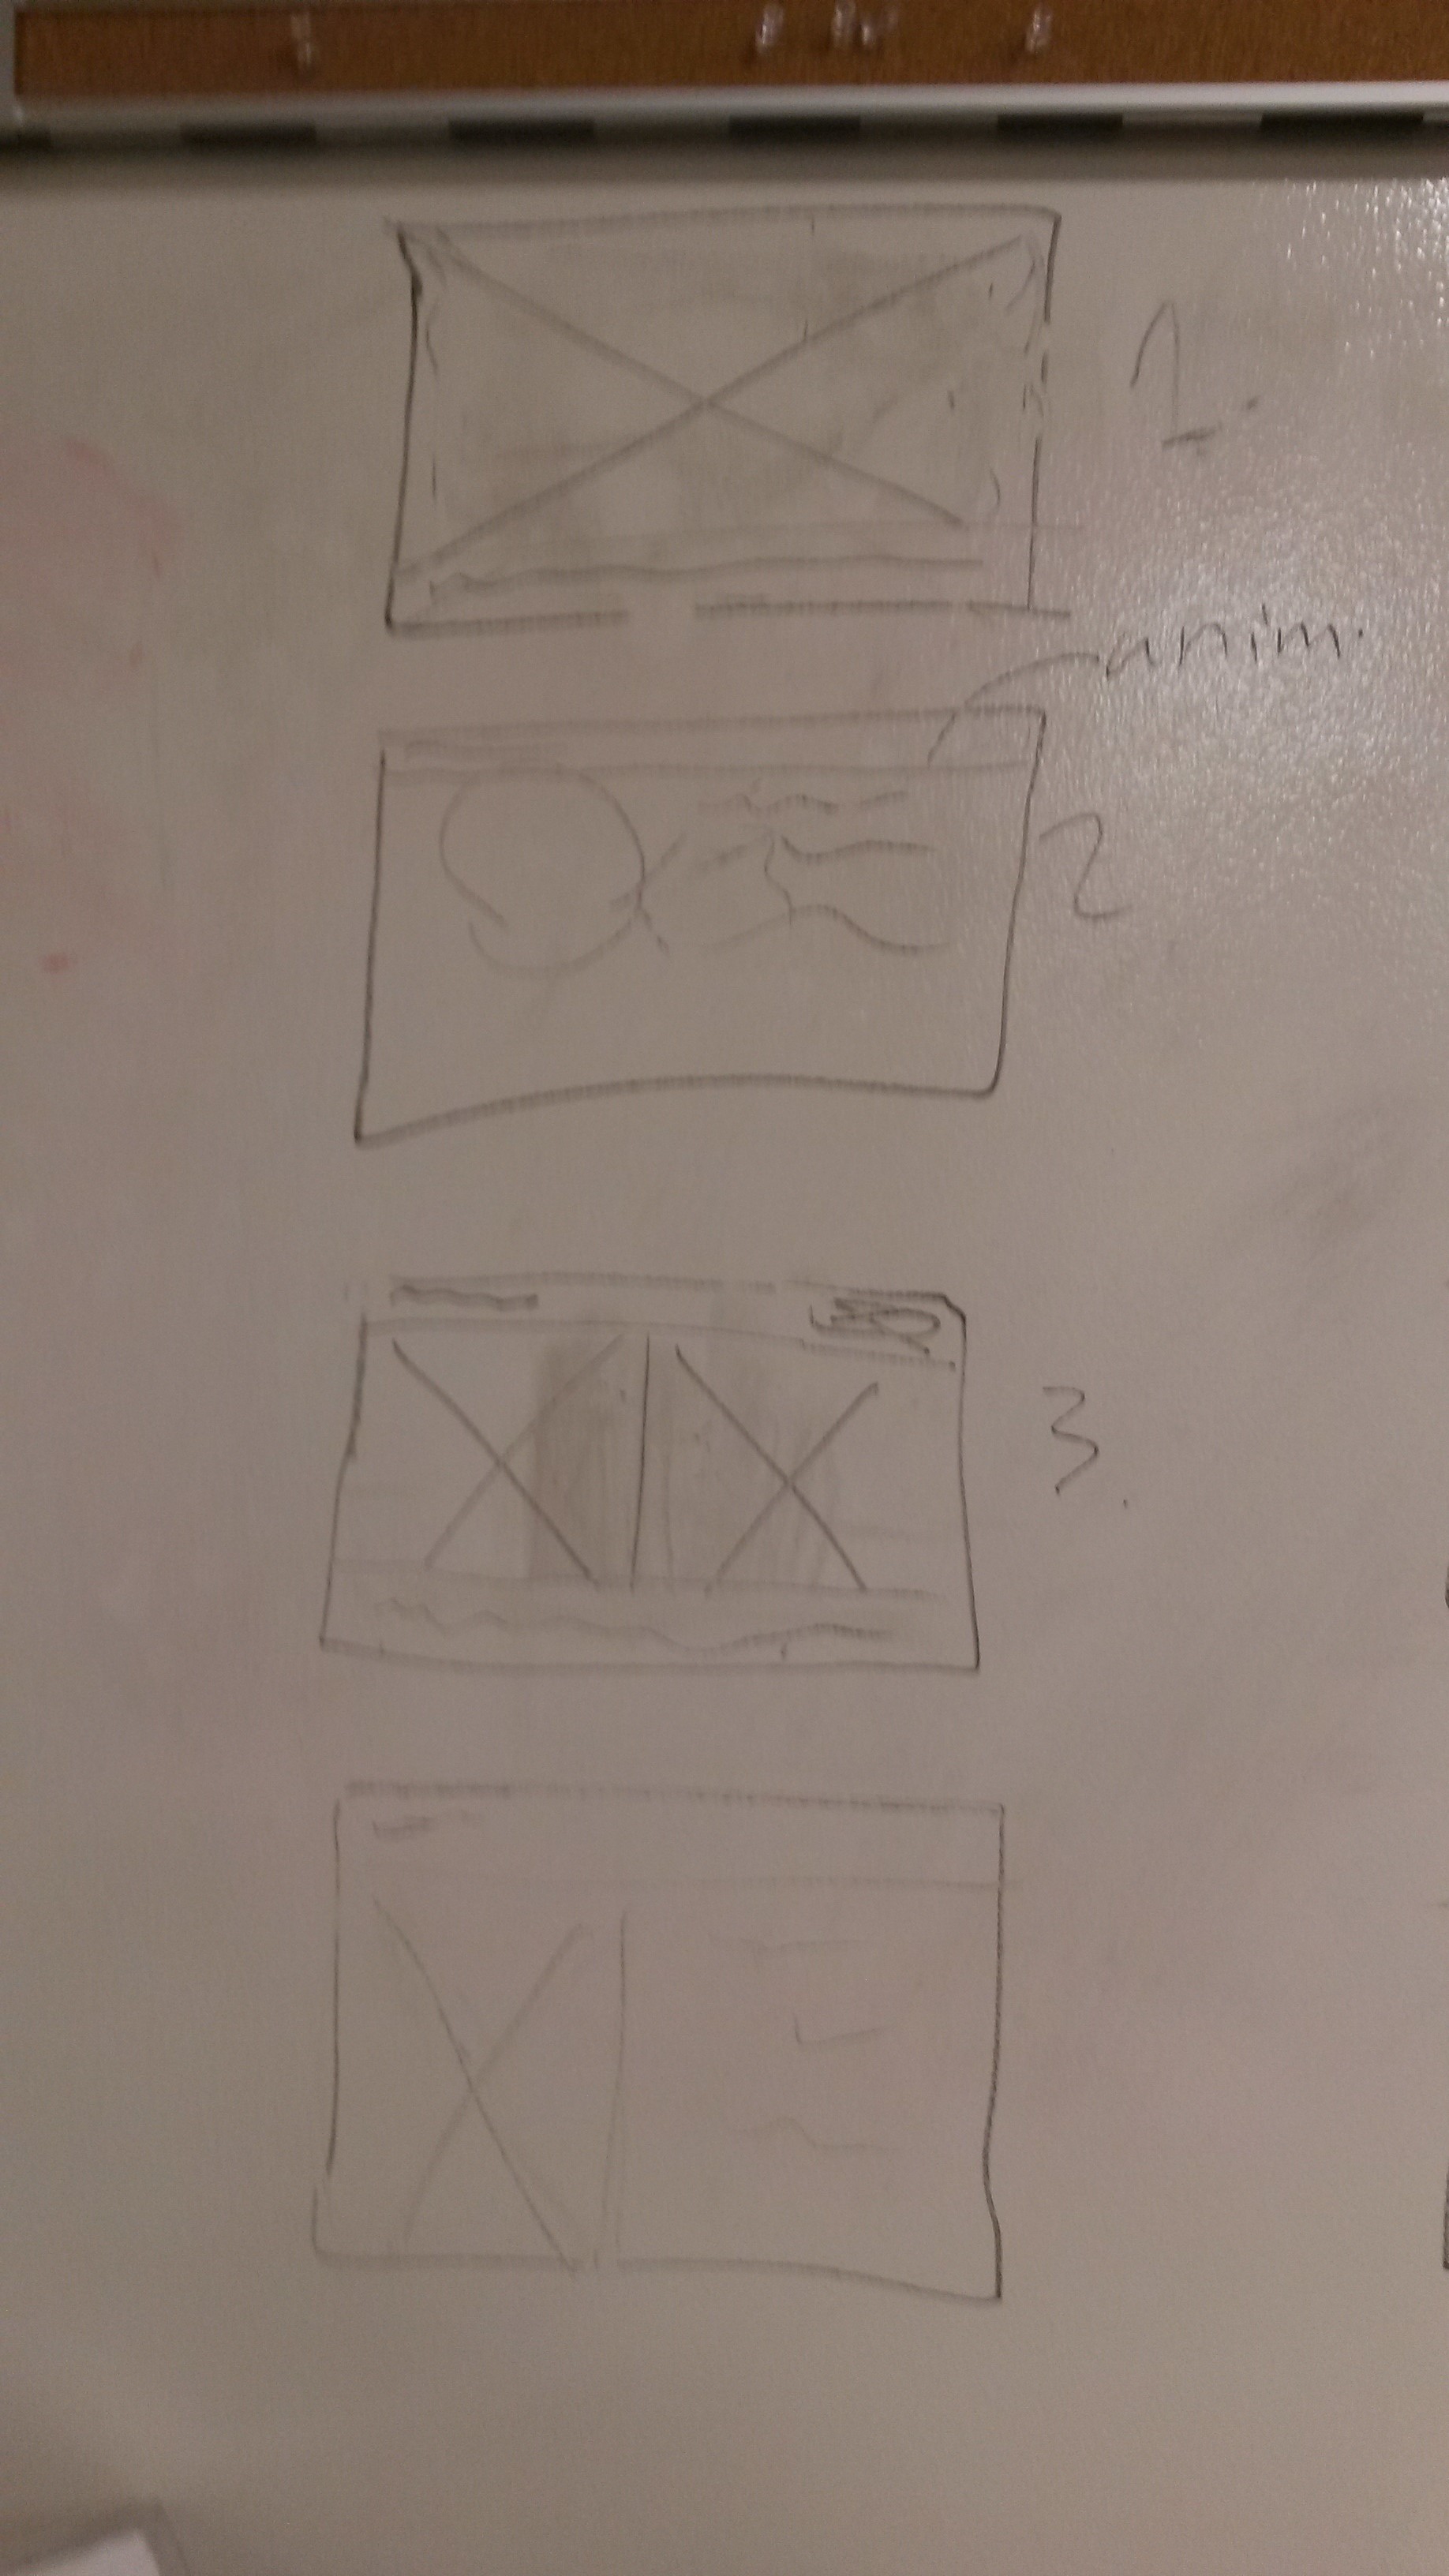 1.
anim.
2
3.